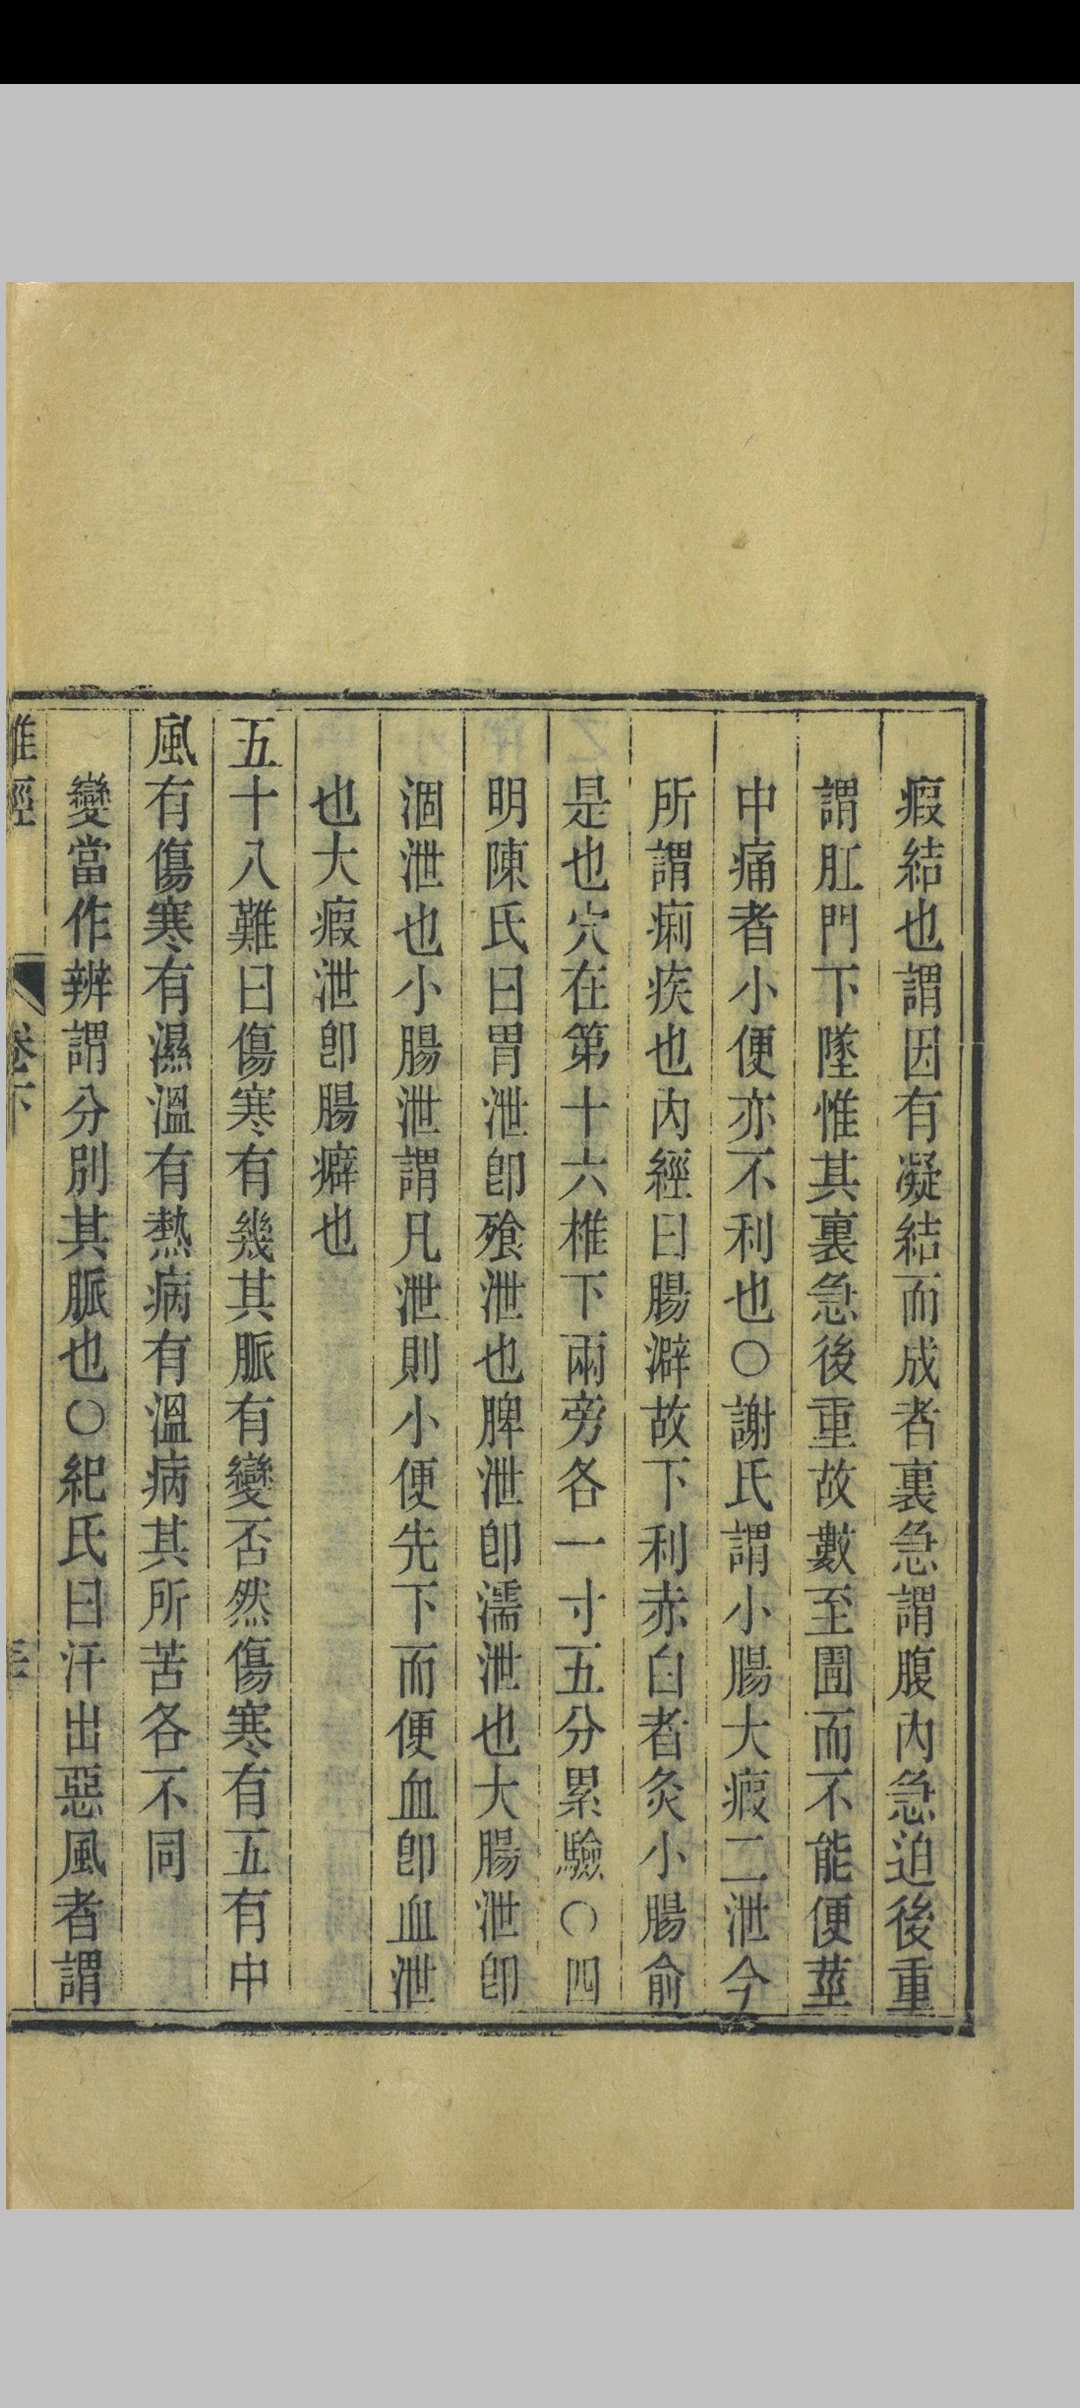 瘕結也謂因有凝結而成者裏急謂腹內急迫後重
謂肛門下墜惟其裏急後重故數至圊而不能便莖
中痛者小便亦不利也○謝氏謂小腸大瘕二泄今
所謂痢疾也內經曰腸澼故下利赤白者灸小腸俞
是也穴在第十六椎下兩旁各一寸五分累驗○四
明陳氏曰胃泄卽飱泄也脾泄卽濡泄也大腸泄卽
洞泄也小腸泄謂凡泄則小便先下而便血卽血泄
也大瘕泄卽腸癖也
五十八難曰傷寒有幾其脈有變否然傷寒有五有中
風有傷寒有濕溫有熱病有溫病其所苦各不同
變當作辨謂分別其脈也○紀氏曰汗出惡風者謂
卷下